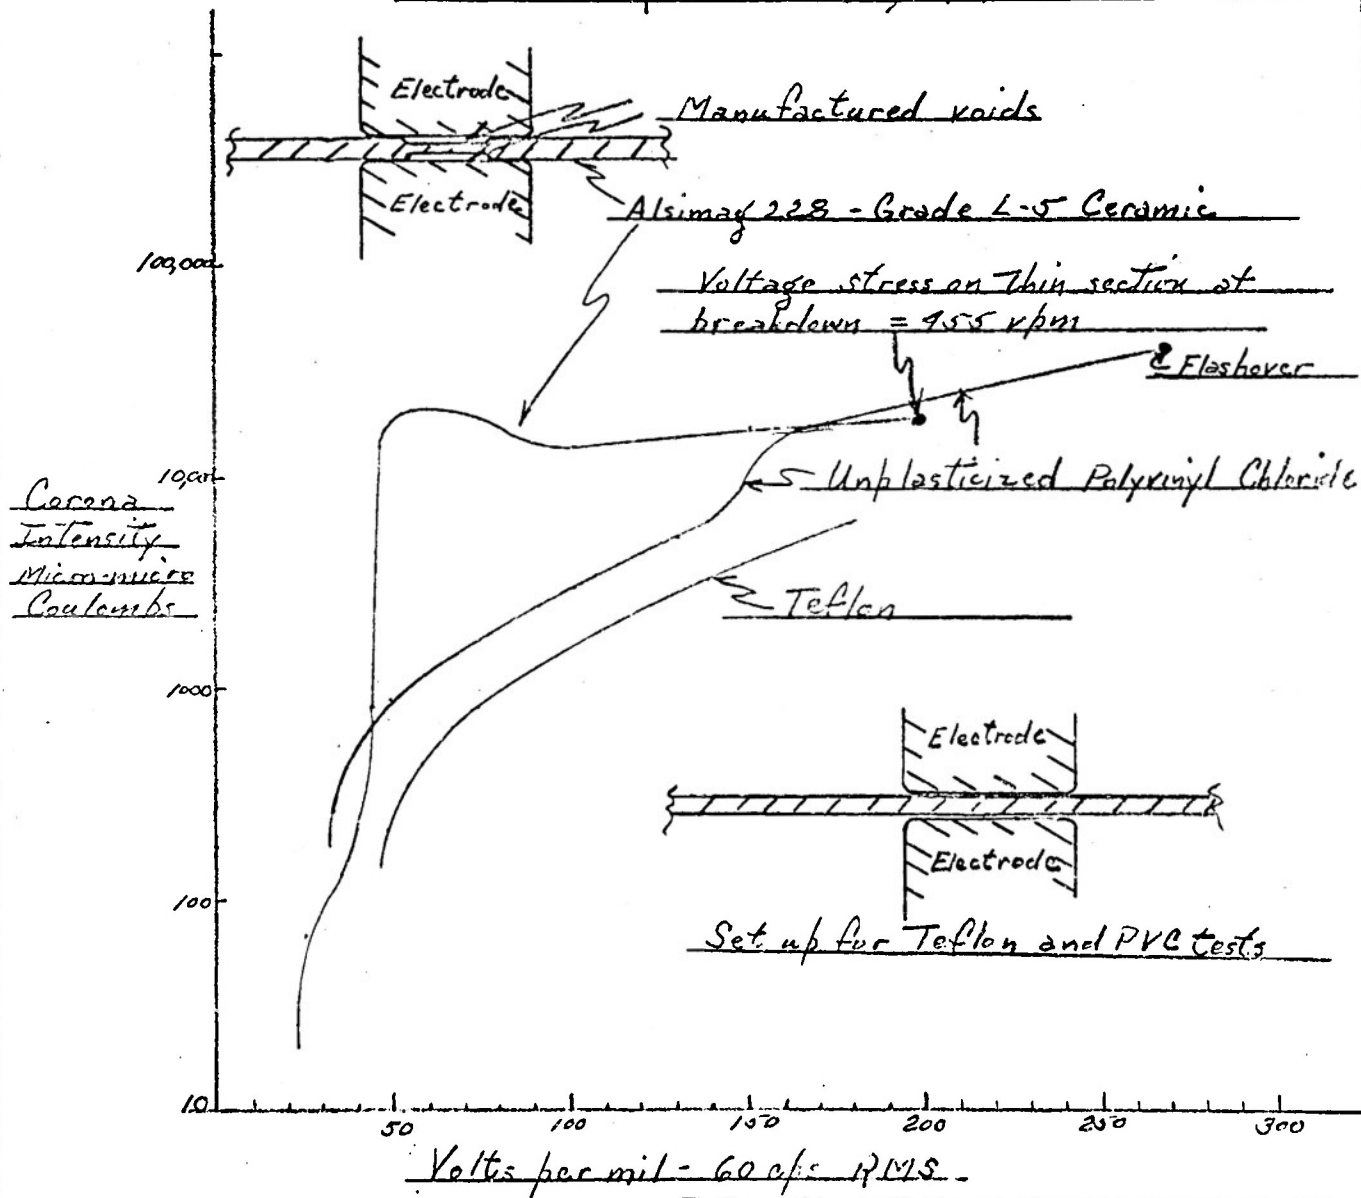 Electrode
Manufactured voids
Electrode
Alsimag 228 - Grade L-5 Ceramic
100,000
Voltage stress on Thin section at
breakdown = 455 vpm
@ Flashover
Unplasticized Polyvinyl Chloride
Corona
Intensity
Micro-micro
Coulombs
Teflon
1000
Electrode
Electrode
100
Set up for Teflon and PVC tests
10
50
100
150
200
250
300
Volts per mil - 60 cps RMS